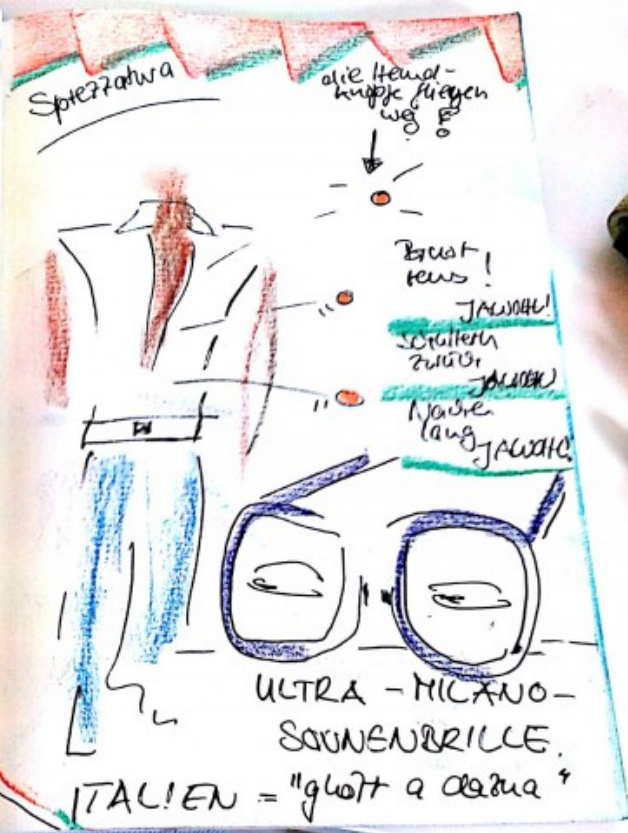 Sprezzatura
die Hemd-
knöpfe fliegen
weg !
Brust
raus !
JAWOHL!
Schultern
zurück
JAWOHL!
Nacken
lang
JAWOHL!
ULTRA -MILANO-
SONNENBRILLE.
ITALIEN = "ghört a dazua"